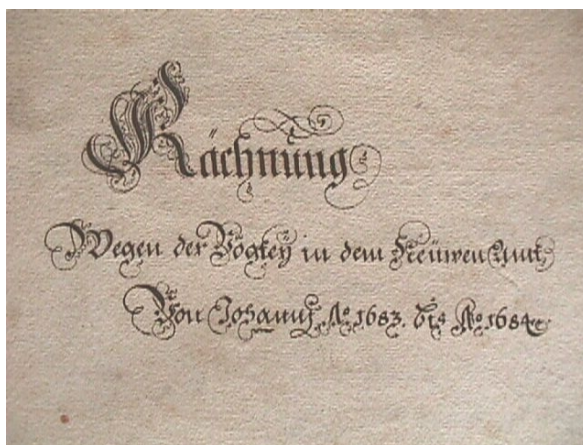 Rächnung
Wegen der Vogtey in dem Neüwen Amt,
Von Johannis, Aº 1683. bis Aº 1684